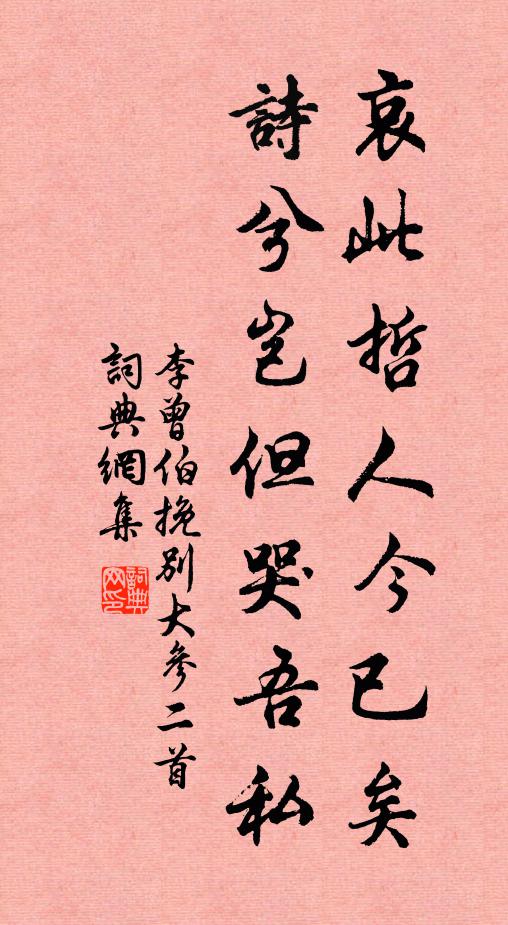 哀此哲人今已矣
詩兮岂但哭吾私
李曾伯挽別大參二首
詞典網集
詞典网印